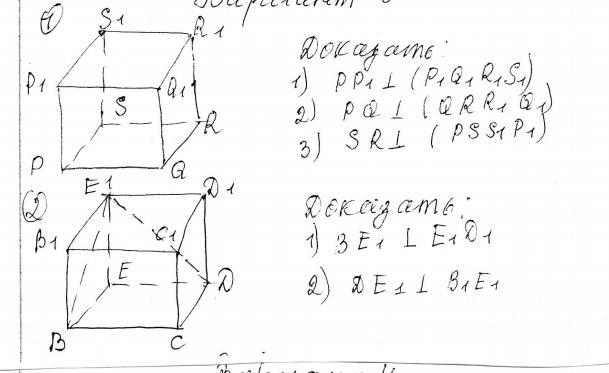 Вариант
1
S1 R1
P1 Q1
S R
P Q
Доказать:
1) PP1 ⊥ (P1Q1R1S1)
2) PQ ⊥ (QRR1Q1)
3) SR ⊥ (PSS1P1)
2
E1 D1
B1 C1
E D
B C
Доказать:
1) BE1 ⊥ E1D1
2) DE1 ⊥ B1E1